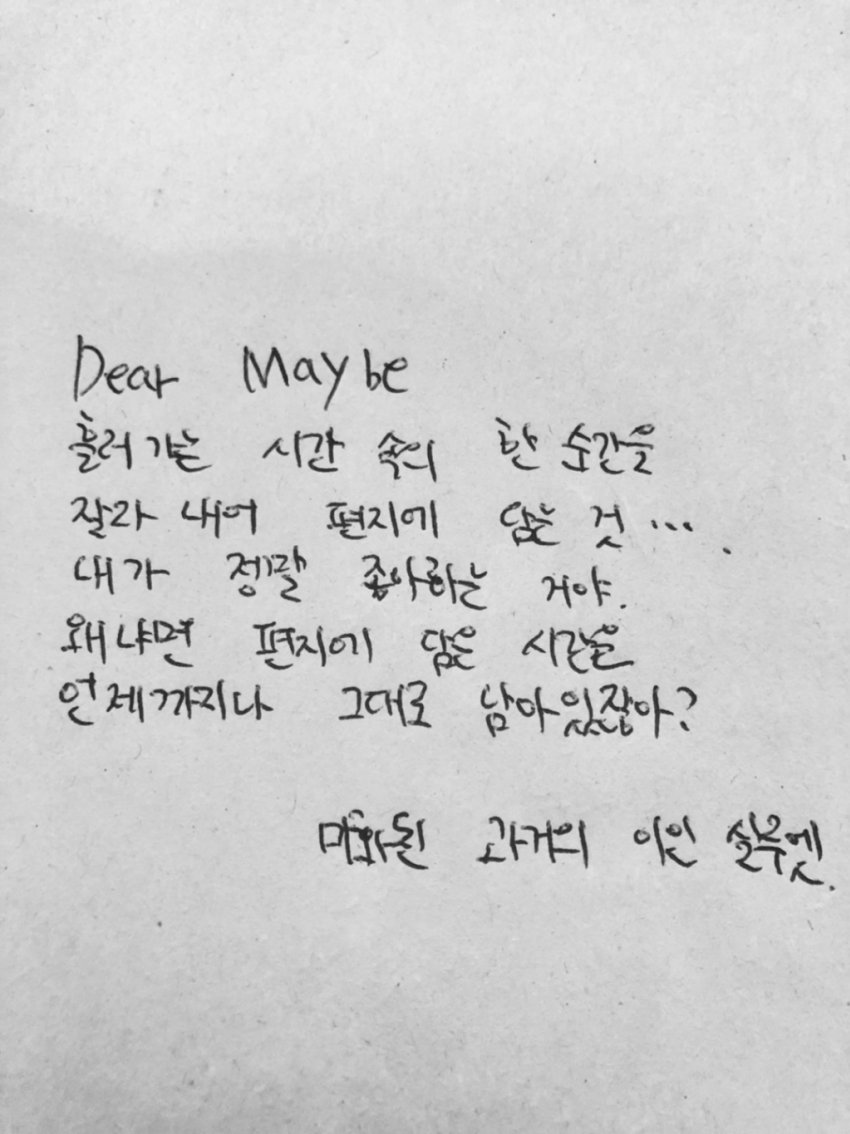 Dear Maybe
흘러가는 시간 속의 한 순간을
잘라 내어 편지에 담는 것...
내가 정말 좋아하는 거야.
왜냐면 편지에 담은 시간을
언제까지나 그대로 남아있잖아?
미화된 과거의 이인 실루엣.